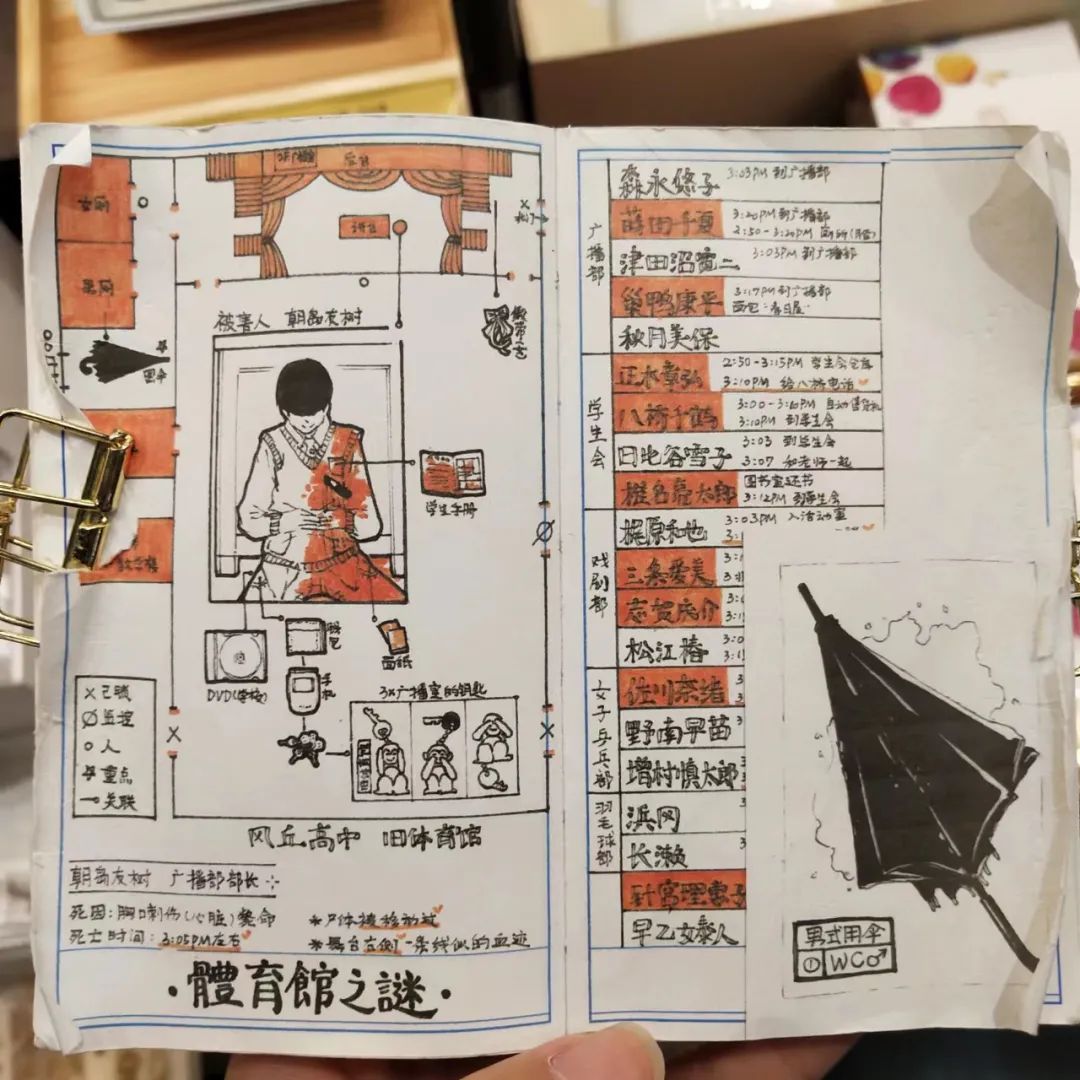 女厕
男厕
后台
讲台
被害人 朝岛友树
雨伞
学生手册
DVD(空格)
手机
面纸
3x广播室的钥匙
X 已锁
Ø 监控
○ 人
重点
关联
风丘高中 旧体育馆
朝岛友树 广播部部长
死因:胸口刺伤(心脏)毙命
死亡时间:3:05PM左右
*尸体被移动过
*舞台左侧一条线似的血迹
·體育館之謎·
广播部
森永悠子 3:03PM 到广播部
莳田千夏 3:20PM 到广播部
2:50-3:20PM 厕所
津田沼雷二 3:03PM 到广播部
巢鸭康平 3:17PM 到广播部
面包:春日屋
秋月美保
学生会
正木章弘 2:50-3:15PM 学生会仓库
3:10PM 给八桥电话
八桥千鹤 3:00-3:10PM 自动售货机
3:10PM 到学生会
日比谷雪子 3:03 到学生会
3:07 和老师一起
椎名亮太郎 图书室还书
3:12PM 到学生会
戏剧部
梶原和也 3:03PM 入活动室
三条爱美
志贺庆介
松江椿
女子乒乓部
佐川奈绪
野南早苗
增村慎太郎
羽毛球部
浜冈
长濑
针宫理惠子
早乙女泰人
男式用伞
① WC♂